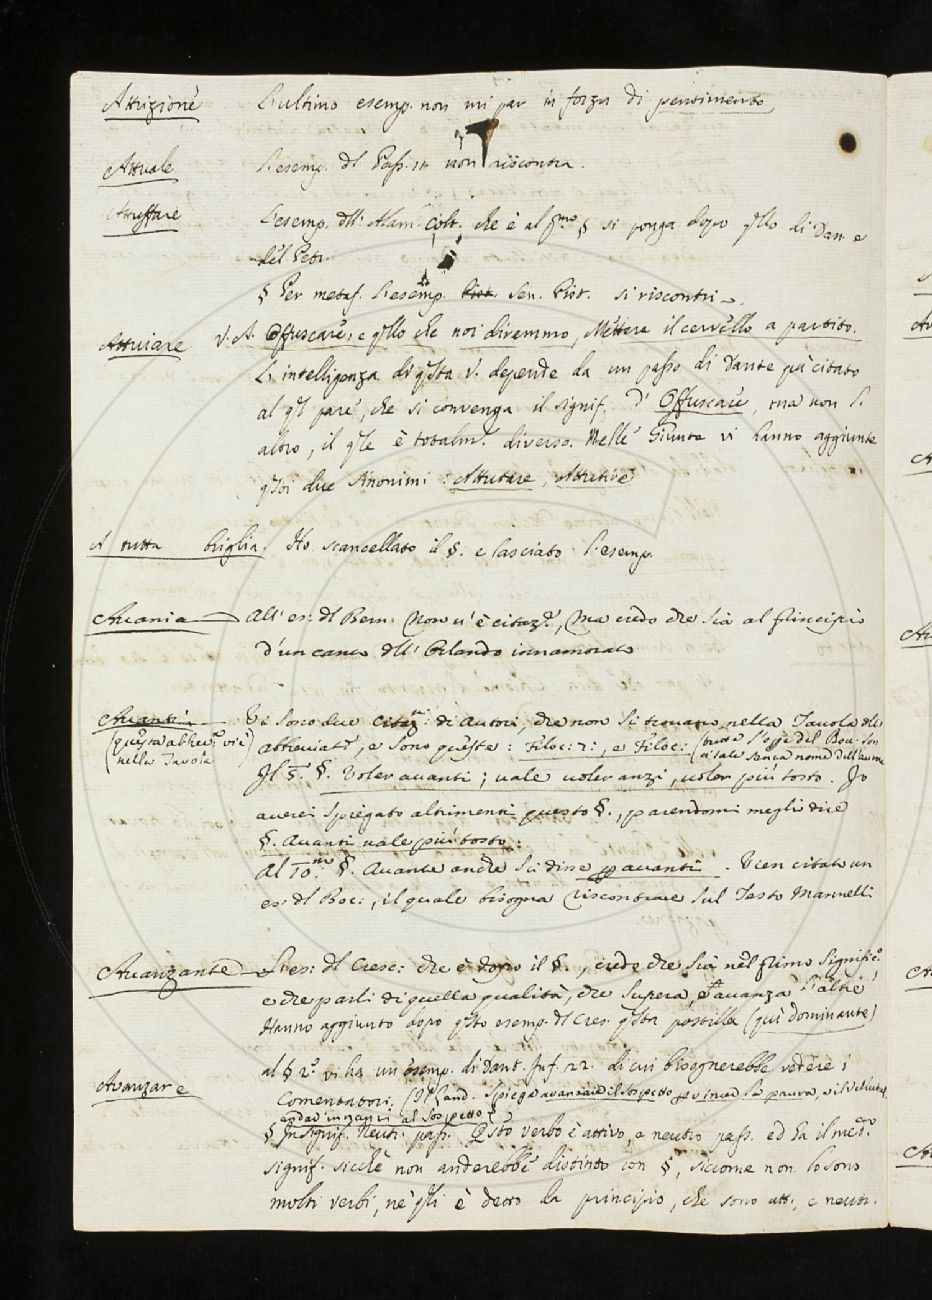 Attrizione L'ultimo esemp. non mi par in forza di pentimento
Attuale L'esemp. dl Pass. in non riscontra.
Attuffare L'esemp. dll' Alam. Colt. che è al pmo § si ponga dopo qllo di Dan e
del Petr.
§ Per metaf. L'esemp. Pist. Sen. Pist. si riscontri
Attuiare V. A. Offuscare, e qllo che noi diremmo, Mettere il cervello a partito.
L'intelligenza di qsta V. depende da un passo di Dante pù citato
al ql pare, che si convenga il signif. d' Offuscare, ma non l'
altro, il qle è totalmte diverso. Nelle Giunte vi hanno aggiunte
qsti due Anonimi: Attutare, Attutire
A tutta briglia. Ho scancellato il §. e lasciato l'esemp.
Avania All' es: dl Bern: Non v'è citazne, Ma credo che sia al principio
d'un canto dll' Orlando innamorato
Avanti. Vi sono due citazni: di autori, che non si trovano nella Tavola dlle
(questa abbrevre vi è abbreviatre, e sono queste: Filoc: 2:, e Filoc: (tutte l'opre del Boc. son
nella Tavola) citate senza nome dell'autore
Il 5. §. Voler avanti; vale voler anzi, voler più tosto. Io
averei spiegato altrimenti questo §., parendomi meglio dire
§. Avanti vale più tosto:
Al 10.mo §. Avante anche si disse p avanti. Vien citato un
es: dl Boc:, il quale bisogna riscontrare sul Testo Mannelli
Avanzante L'es: dl Cresc: che è dopo il §., credo che sia nel primo significo
e che parli di quella qualità, che supera, ed avanza l'altre
Hanno aggiunto dopo qsto esemp. dl Cres. qsta postilla (qui dominante)
Avanzare al § 2.o vi ha un esemp. di Dant. Inf. 22. di cui bisognerebbe vedere i
Comentatori, (Il Land. Spiega avanzare il sospetto per vincer la paura, e il Vellutel.
andar innanzi al sospetto)
§ In signif. Neutr. pass. Qsto verbo è attivo, e neutro pass. ed ha il medo
signif. sicchè non anderebbe distinto con §, siccome non lo sono
molti verbi, nè qli è detto da principio, che sono att., e neutr.